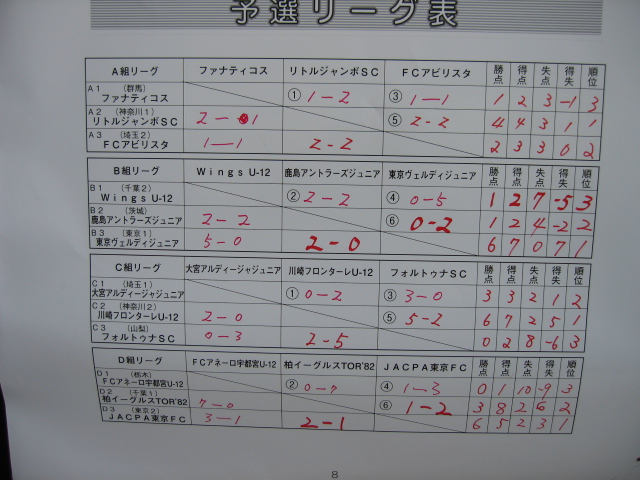 予選リーグ表
A組リーグ ファナティコス リトルジャンボSC FCアビリスタ 勝点 得点 失点 得失 順位
A1 (群馬) ファナティコス ① 1-2 ③ 1-1 1 2 3 -1 3
A2 (神奈川1) リトルジャンボSC 2-1 ⑤ 2-2 4 4 3 1 1
A3 (埼玉2) FCアビリスタ 1-1 2-2 2 3 3 0 2
B組リーグ Wings U-12 鹿島アントラーズジュニア 東京ヴェルディジュニア 勝点 得点 失点 得失 順位
B1 (千葉2) Wings U-12 ② 2-2 ④ 0-5 1 2 7 -5 3
B2 (茨城) 鹿島アントラーズジュニア 2-2 ⑥ 0-2 1 2 4 -2 2
B3 (東京1) 東京ヴェルディジュニア 5-0 2-0 6 7 0 7 1
C組リーグ 大宮アルディージャジュニア 川崎フロンターレU-12 フォルトゥナSC 勝点 得点 失点 得失 順位
C1 (埼玉1) 大宮アルディージャジュニア ① 0-2 ③ 3-0 3 3 2 1 2
C2 (神奈川2) 川崎フロンターレU-12 2-0 ⑤ 5-2 6 7 2 5 1
C3 (山梨) フォルトゥナSC 0-3 2-5 0 2 8 -6 3
D組リーグ FCアネーロ宇都宮U-12 柏イーグルスTOR'82 JACPA東京FC 勝点 得点 失点 得失 順位
D1 (栃木) FCアネーロ宇都宮U-12 ② 0-7 ④ 1-3 0 1 10 -9 3
D2 (千葉1) 柏イーグルスTOR'82 7-0 ⑥ 1-2 3 8 2 6 2
D3 (東京2) JACPA東京FC 3-1 2-1 6 5 2 3 1
8